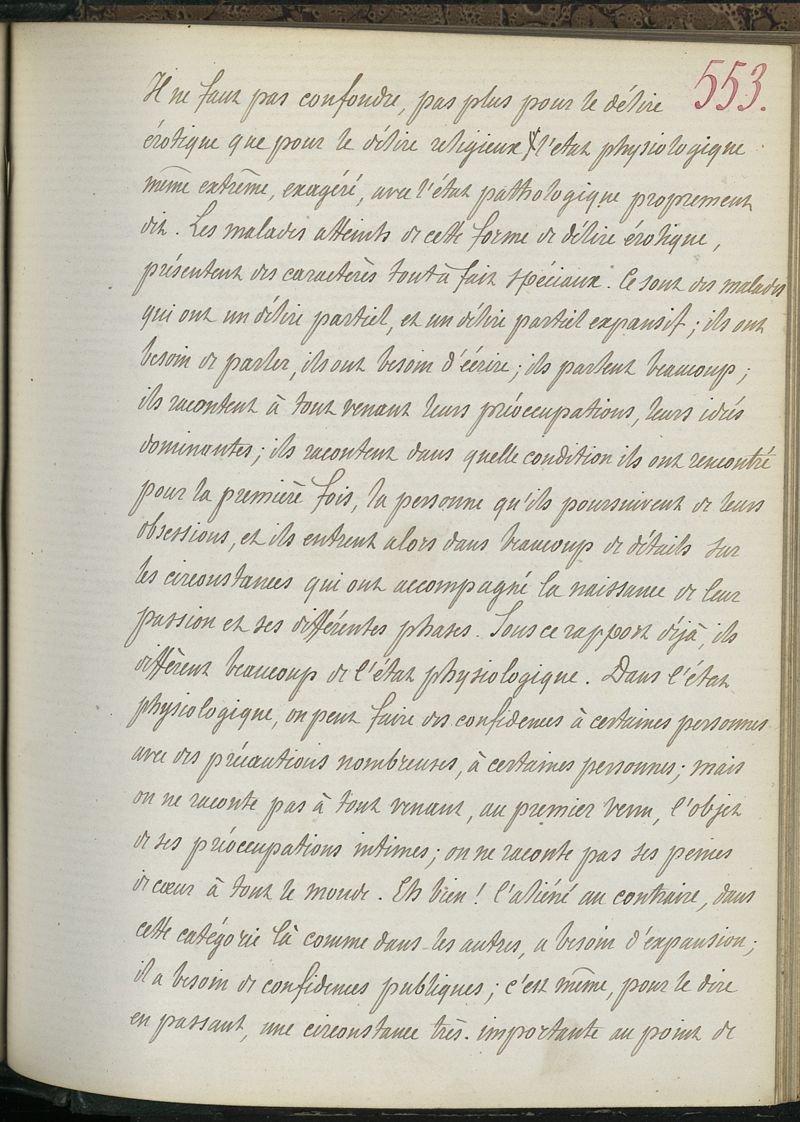 553.
Il ne faut pas confondre, pas plus pour le délire
érotique que pour le délire religieux, l'état physiologique
même extrême, exagéré, avec l'état pathologique proprement
dit. Les malades atteints de cette forme de délire érotique,
présentent des caractères tout à fait spéciaux. Ce sont des malades
qui ont un délire partiel, et un délire partiel expansif ; ils ont
besoin de parler, ils ont besoin d'écrire ; ils parlent beaucoup ;
ils racontent à tout venant leurs préoccupations, leurs idées
dominantes ; ils racontent dans quelle condition ils ont rencontré
pour la première fois, la personne qu'ils poursuivent de leurs
obsessions, et ils entrent alors dans beaucoup de détails sur
les circonstances qui ont accompagné la naissance de leur
passion et ses différentes phases. Sous ce rapport déjà, ils
diffèrent beaucoup de l'état physiologique. Dans l'état
physiologique, on peut faire des confidences à certaines personnes
avec des précautions nombreuses, à certaines personnes ; mais
on ne raconte pas à tout venant, au premier venu, l'objet
de ses préoccupations intimes ; on ne raconte pas ses peines
de cœur à tout le monde. Eh bien ! l'aliéné au contraire, dans
cette catégorie là comme dans les autres, a besoin d'expansion ;
il a besoin de confidences publiques ; c'est même, pour le dire
en passant, une circonstance très-importante au point de